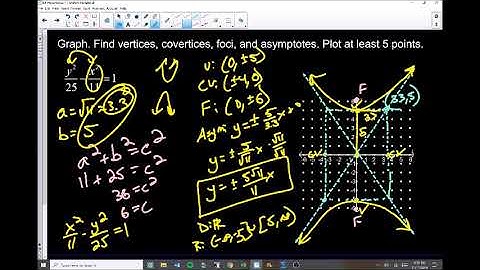 Graph. Find vertices, covertices, foci, and asymptotes. Plot at least 5 points.
y²/25 - x²/11 = 1
a = √11 = 3.3
b = 5
a² + b² = c²
11 + 25 = c²
36 = c²
6 = c
x²/11 - y²/25 = 1
V: (0, ±5)
F: (0, ±6)
y = ± 5/√11 x · √11/√11
y = ± 5√11/11 x
F
(3.3, 5)
5
F